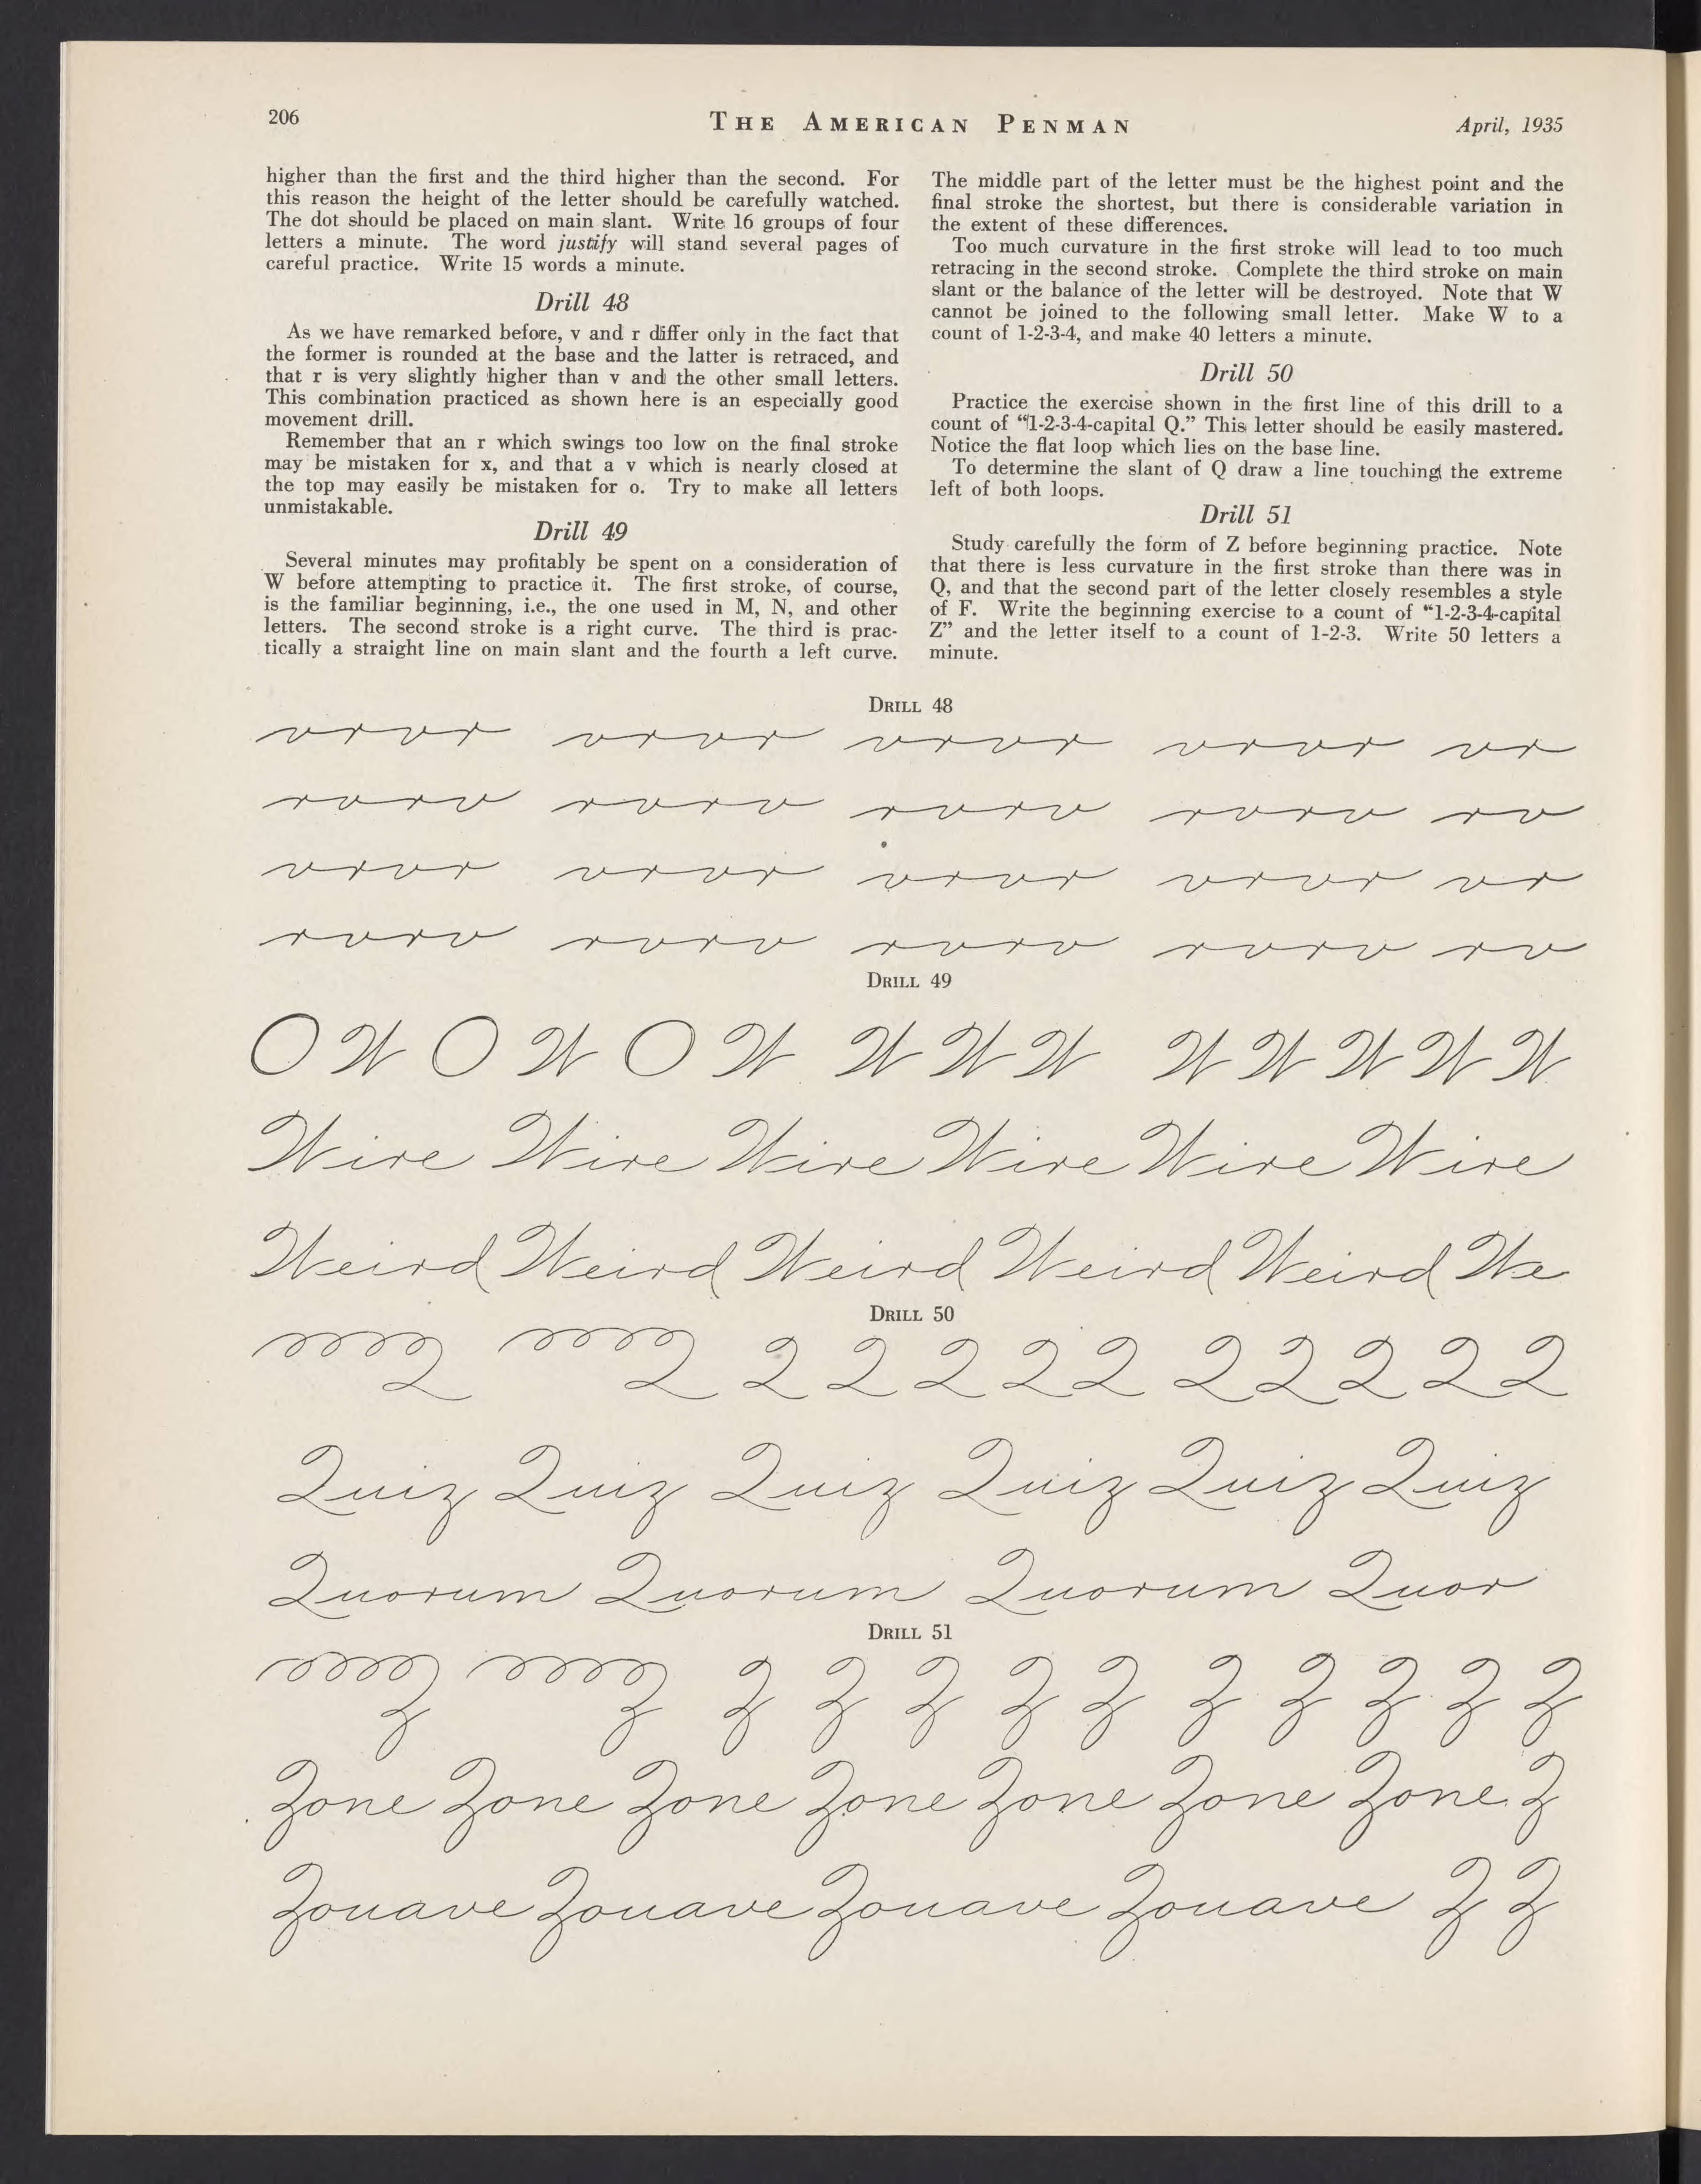 206
THE AMERICAN PENMAN
April, 1935
higher than the first and the third higher than the second. For
this reason the height of the letter should be carefully watched.
The dot should be placed on main slant. Write 16 groups of four
letters a minute. The word justify will stand several pages of
careful practice. Write 15 words a minute.
Drill 48
As we have remarked before, v and r differ only in the fact that
the former is rounded at the base and the latter is retraced, and
that r is very slightly higher than v and the other small letters.
This combination practiced as shown here is an especially good
movement drill.
Remember that an r which swings too low on the final stroke
may be mistaken for x, and that a v which is nearly closed at
the top may easily be mistaken for o. Try to make all letters
unmistakable.
Drill 49
Several minutes may profitably be spent on a consideration of
W before attempting to practice it. The first stroke, of course,
is the familiar beginning, i.e., the one used in M, N, and other
letters. The second stroke is a right curve. The third is prac-
tically a straight line on main slant and the fourth a left curve.
The middle part of the letter must be the highest point and the
final stroke the shortest, but there is considerable variation in
the extent of these differences.
Too much curvature in the first stroke will lead to too much
retracing in the second stroke. Complete the third stroke on main
slant or the balance of the letter will be destroyed. Note that W
cannot be joined to the following small letter. Make W to a
count of 1-2-3-4, and make 40 letters a minute.
Drill 50
Practice the exercise shown in the first line of this drill to a
count of “1-2-3-4-capital Q.” This letter should be easily mastered.
Notice the flat loop which lies on the base line.
To determine the slant of Q draw a line touching the extreme
left of both loops.
Drill 51
Study carefully the form of Z before beginning practice. Note
that there is less curvature in the first stroke than there was in
Q, and that the second part of the letter closely resembles a style
of F. Write the beginning exercise to a count of “1-2-3-4-capital
Z” and the letter itself to a count of 1-2-3. Write 50 letters a
minute.
DRILL 48
vrvr vrvr vrvr vrvr vr
rvrv rvrv rvrv rvrv rv
vrvr vrvr vrvr vrvr vr
rvrv rvrv rvrv rvrv rv
DRILL 49
O W O W O W W W W W W W W W
Wire Wire Wire Wire Wire Wire
Weird Weird Weird Weird Weird We
DRILL 50
Q Q Q Q Q Q Q Q Q Q Q Q
Quiz Quiz Quiz Quiz Quiz Quiz
Quorum Quorum Quorum Quor
DRILL 51
Z Z Z Z Z Z Z Z Z Z Z Z
Zone Zone Zone Zone Zone Zone Zone Z
Zouave Zouave Zouave Zouave Z Z